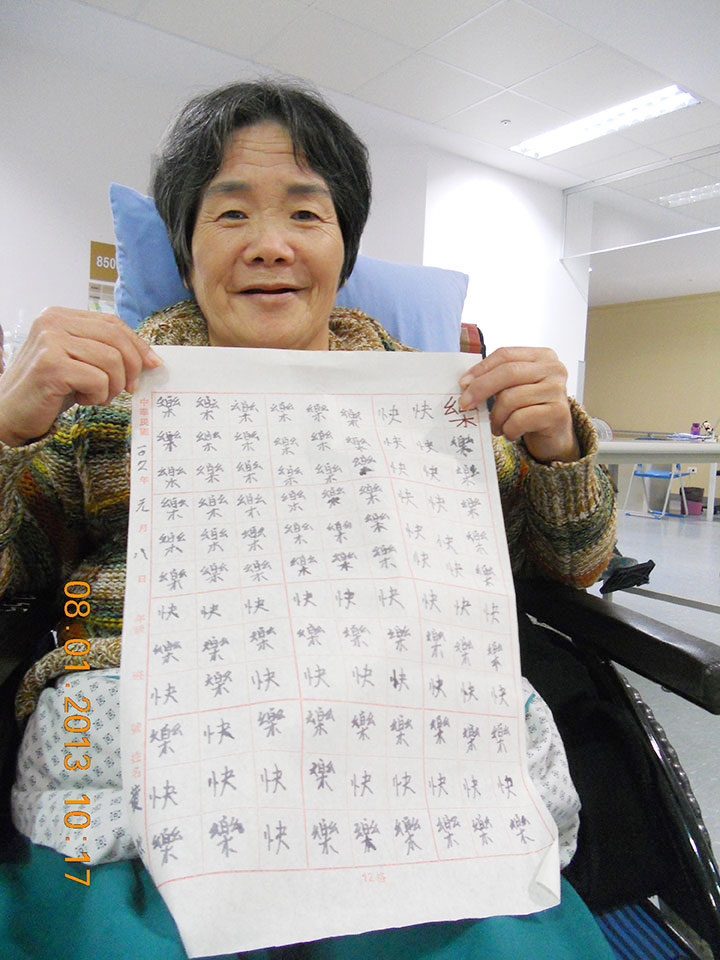 樂樂樂樂樂樂快樂快樂快樂
快快快快快快快樂快樂快樂
快快快快快快快樂快樂快樂
樂樂樂樂樂樂快樂快樂快樂
樂樂樂樂樂樂快樂快樂快樂
樂樂樂樂樂樂快樂快樂樂樂
樂樂樂樂樂樂快樂快樂快快
樂樂樂樂樂樂快樂樂快快樂
樂樂樂樂樂樂快樂快樂快樂
中華民國一0二年元月八日 年級 班 號 姓名
850
08.01.2013 10:17